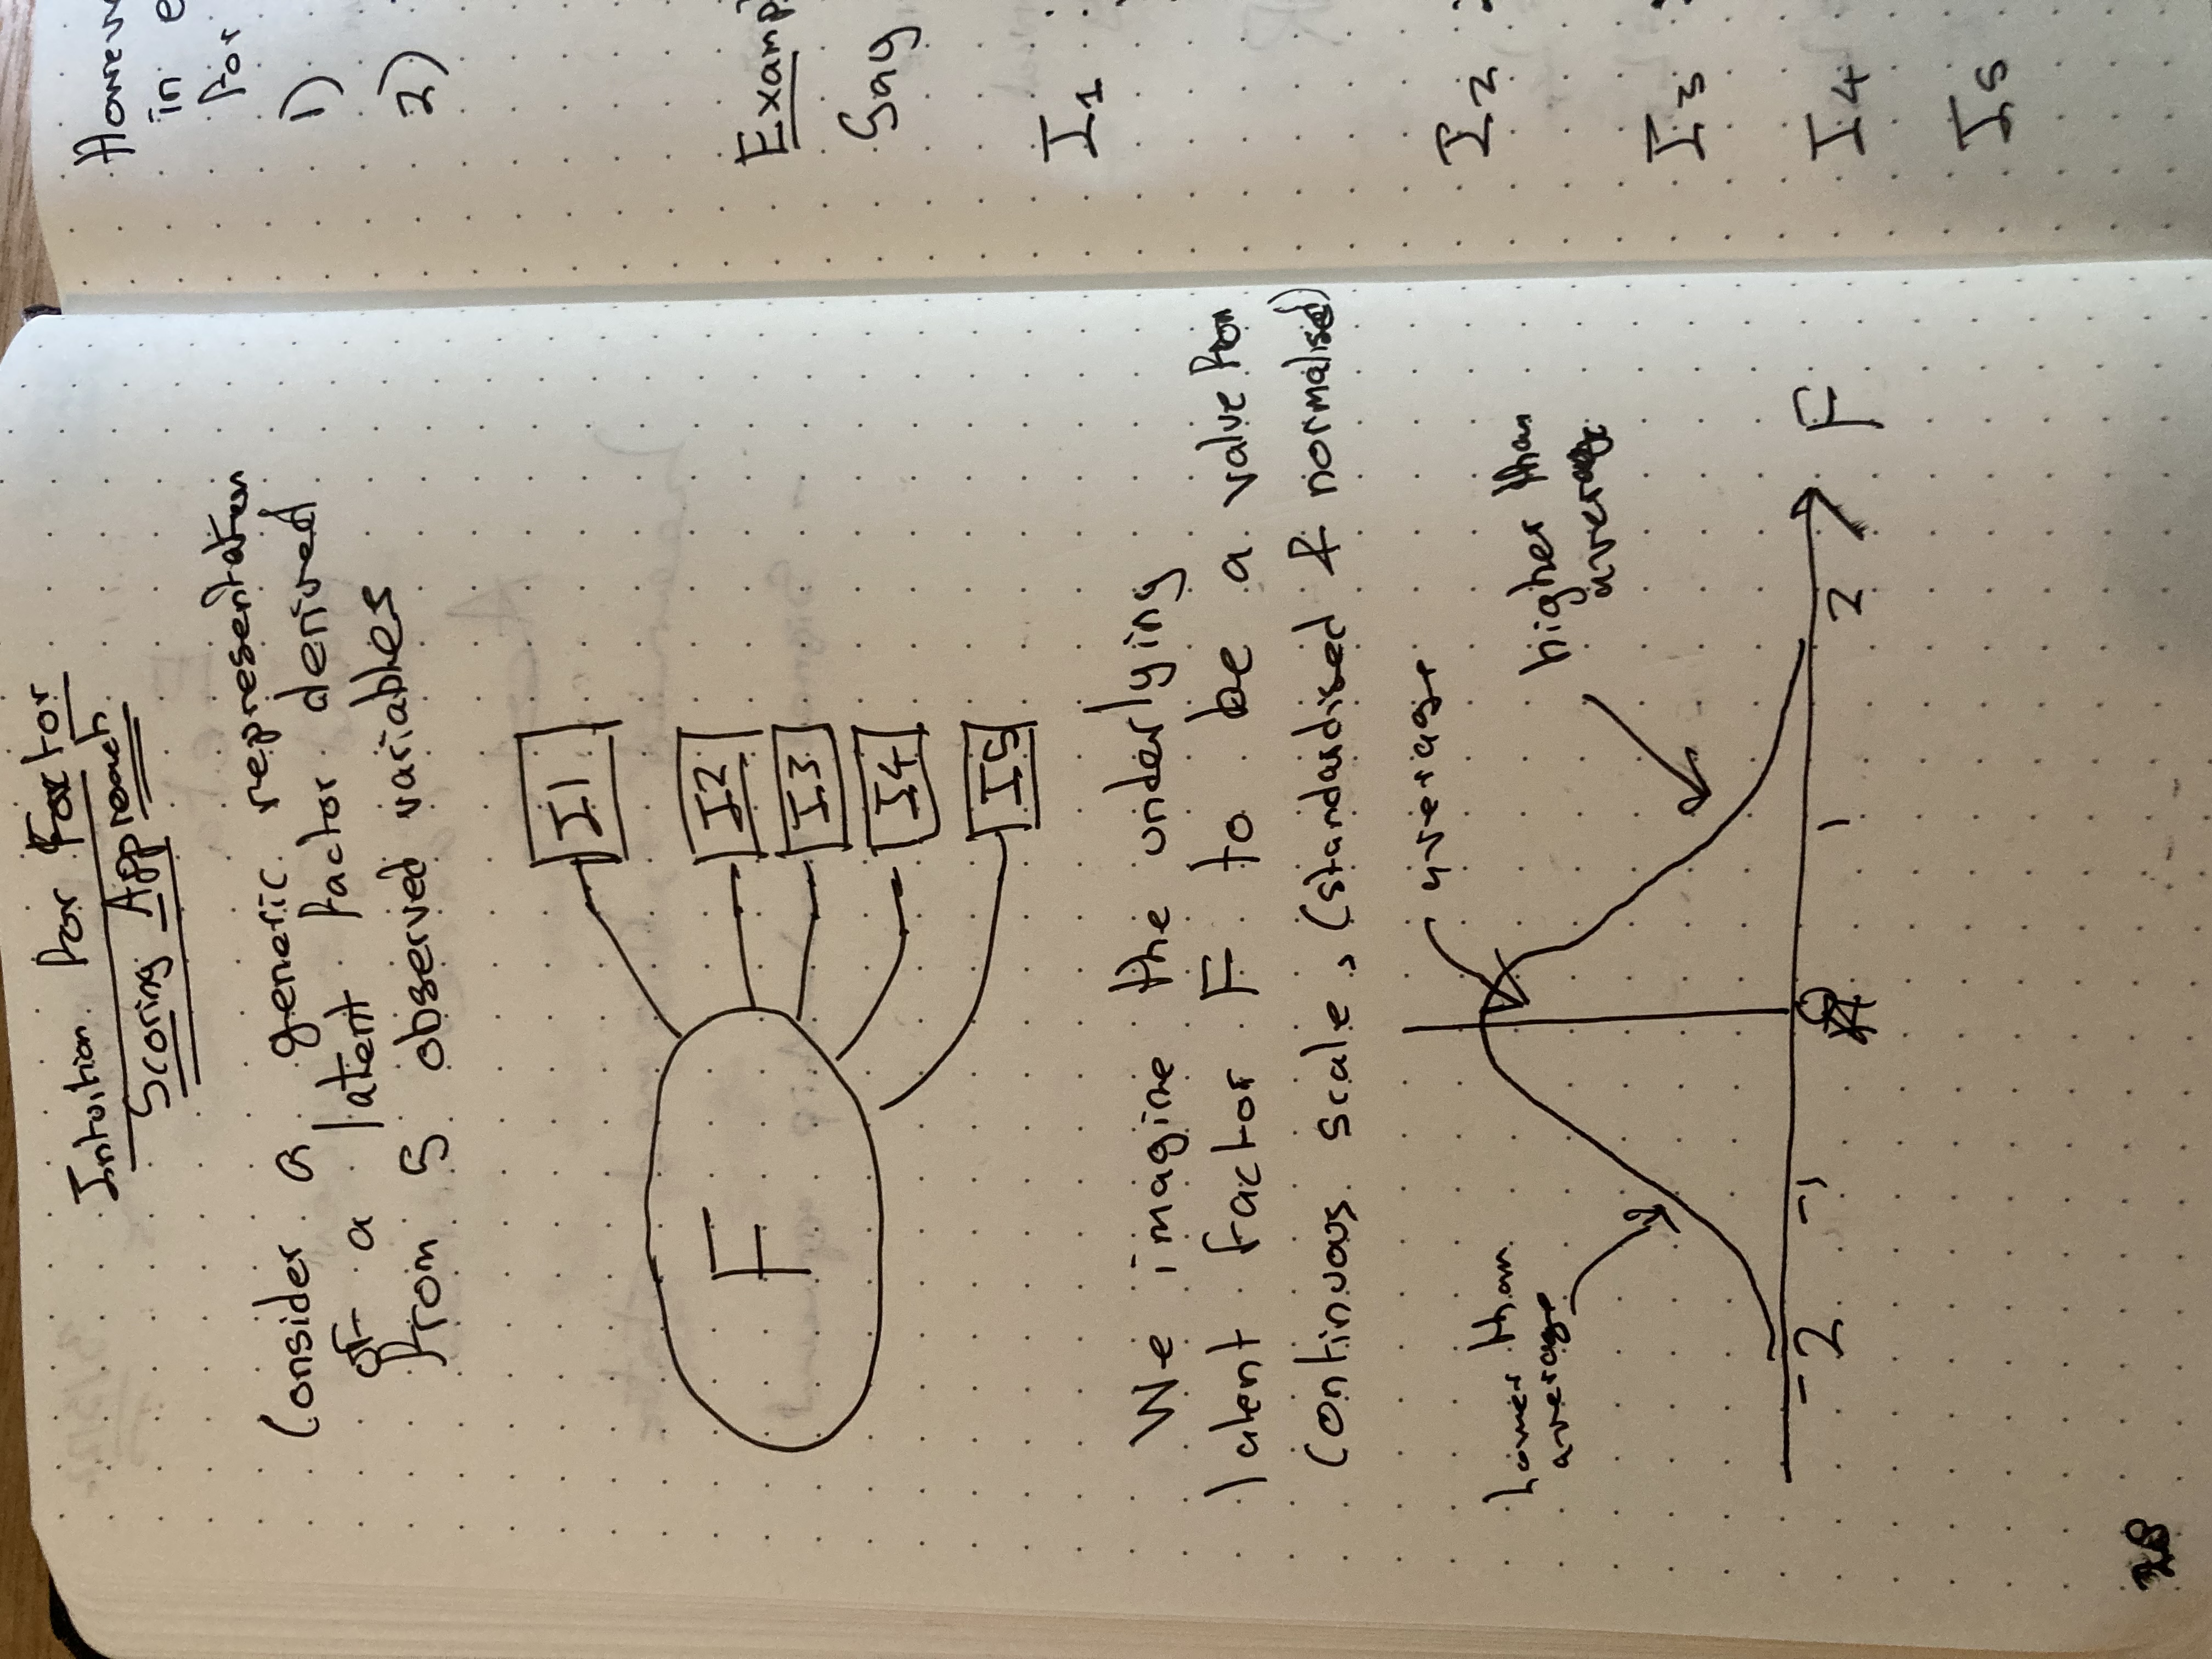 Intuition for Factor
Scoring Approach
Consider a generic representation
of a latent factor derived
from 5 observed variables
F
I1
I2
I3
I4
I5
We imagine the underlying
latent factor F to be a value from
continuous scale, (standardised & normalised)
average
Lower than
average
higher than
average
-2 -1 0 1 2 F
28
in
for
1)
2)
Say
I1 :
I2
I3
I4
I5